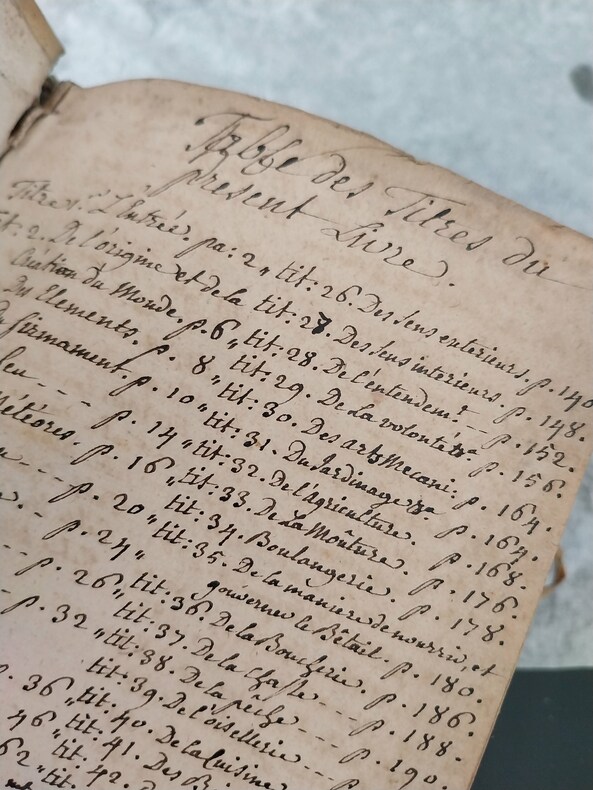 Table des Titres du
present Livre.
Titre 1. L'Entrée. pa: 2 "
tit: 2. De l'origine et de la
Création du Monde. p. 6 "
Des Elements. p. 8 "
firmament. p. 10 "
feu - - - p. 14 "
Météores. p. 16 "
- - - p. 20 "
- - p. 24 "
p. 26 "
p. 32 "
36 "
46 "
62 "
tit: 26. Des sens exterieurs. p. 140
tit: 27. Des sens interieurs. p. 148.
tit: 28. De l'entendemt. - - p. 152.
tit: 29. De la volonté &a p. 156.
tit: 30. Des arts Mecani: p. 164.
tit: 31. Du Jardinage &a p. 164.
tit: 32. De l'agriculture. p. 168.
tit: 33. De La Moûture. p. 176.
tit: 34. Boulangerie. p. 178.
tit: 35. De la maniere de nourrir, et
gouverner le Bêtail. p. 180.
tit: 36. De la Boucherie. p. 186.
tit: 37. De la Chasse - - - p. 188.
tit: 38. De la pêche - - - p. 190.
tit: 39. De l'oisellerie - - - p.
tit: 40. De la Cuisine
tit: 41. Des
tit: 42.